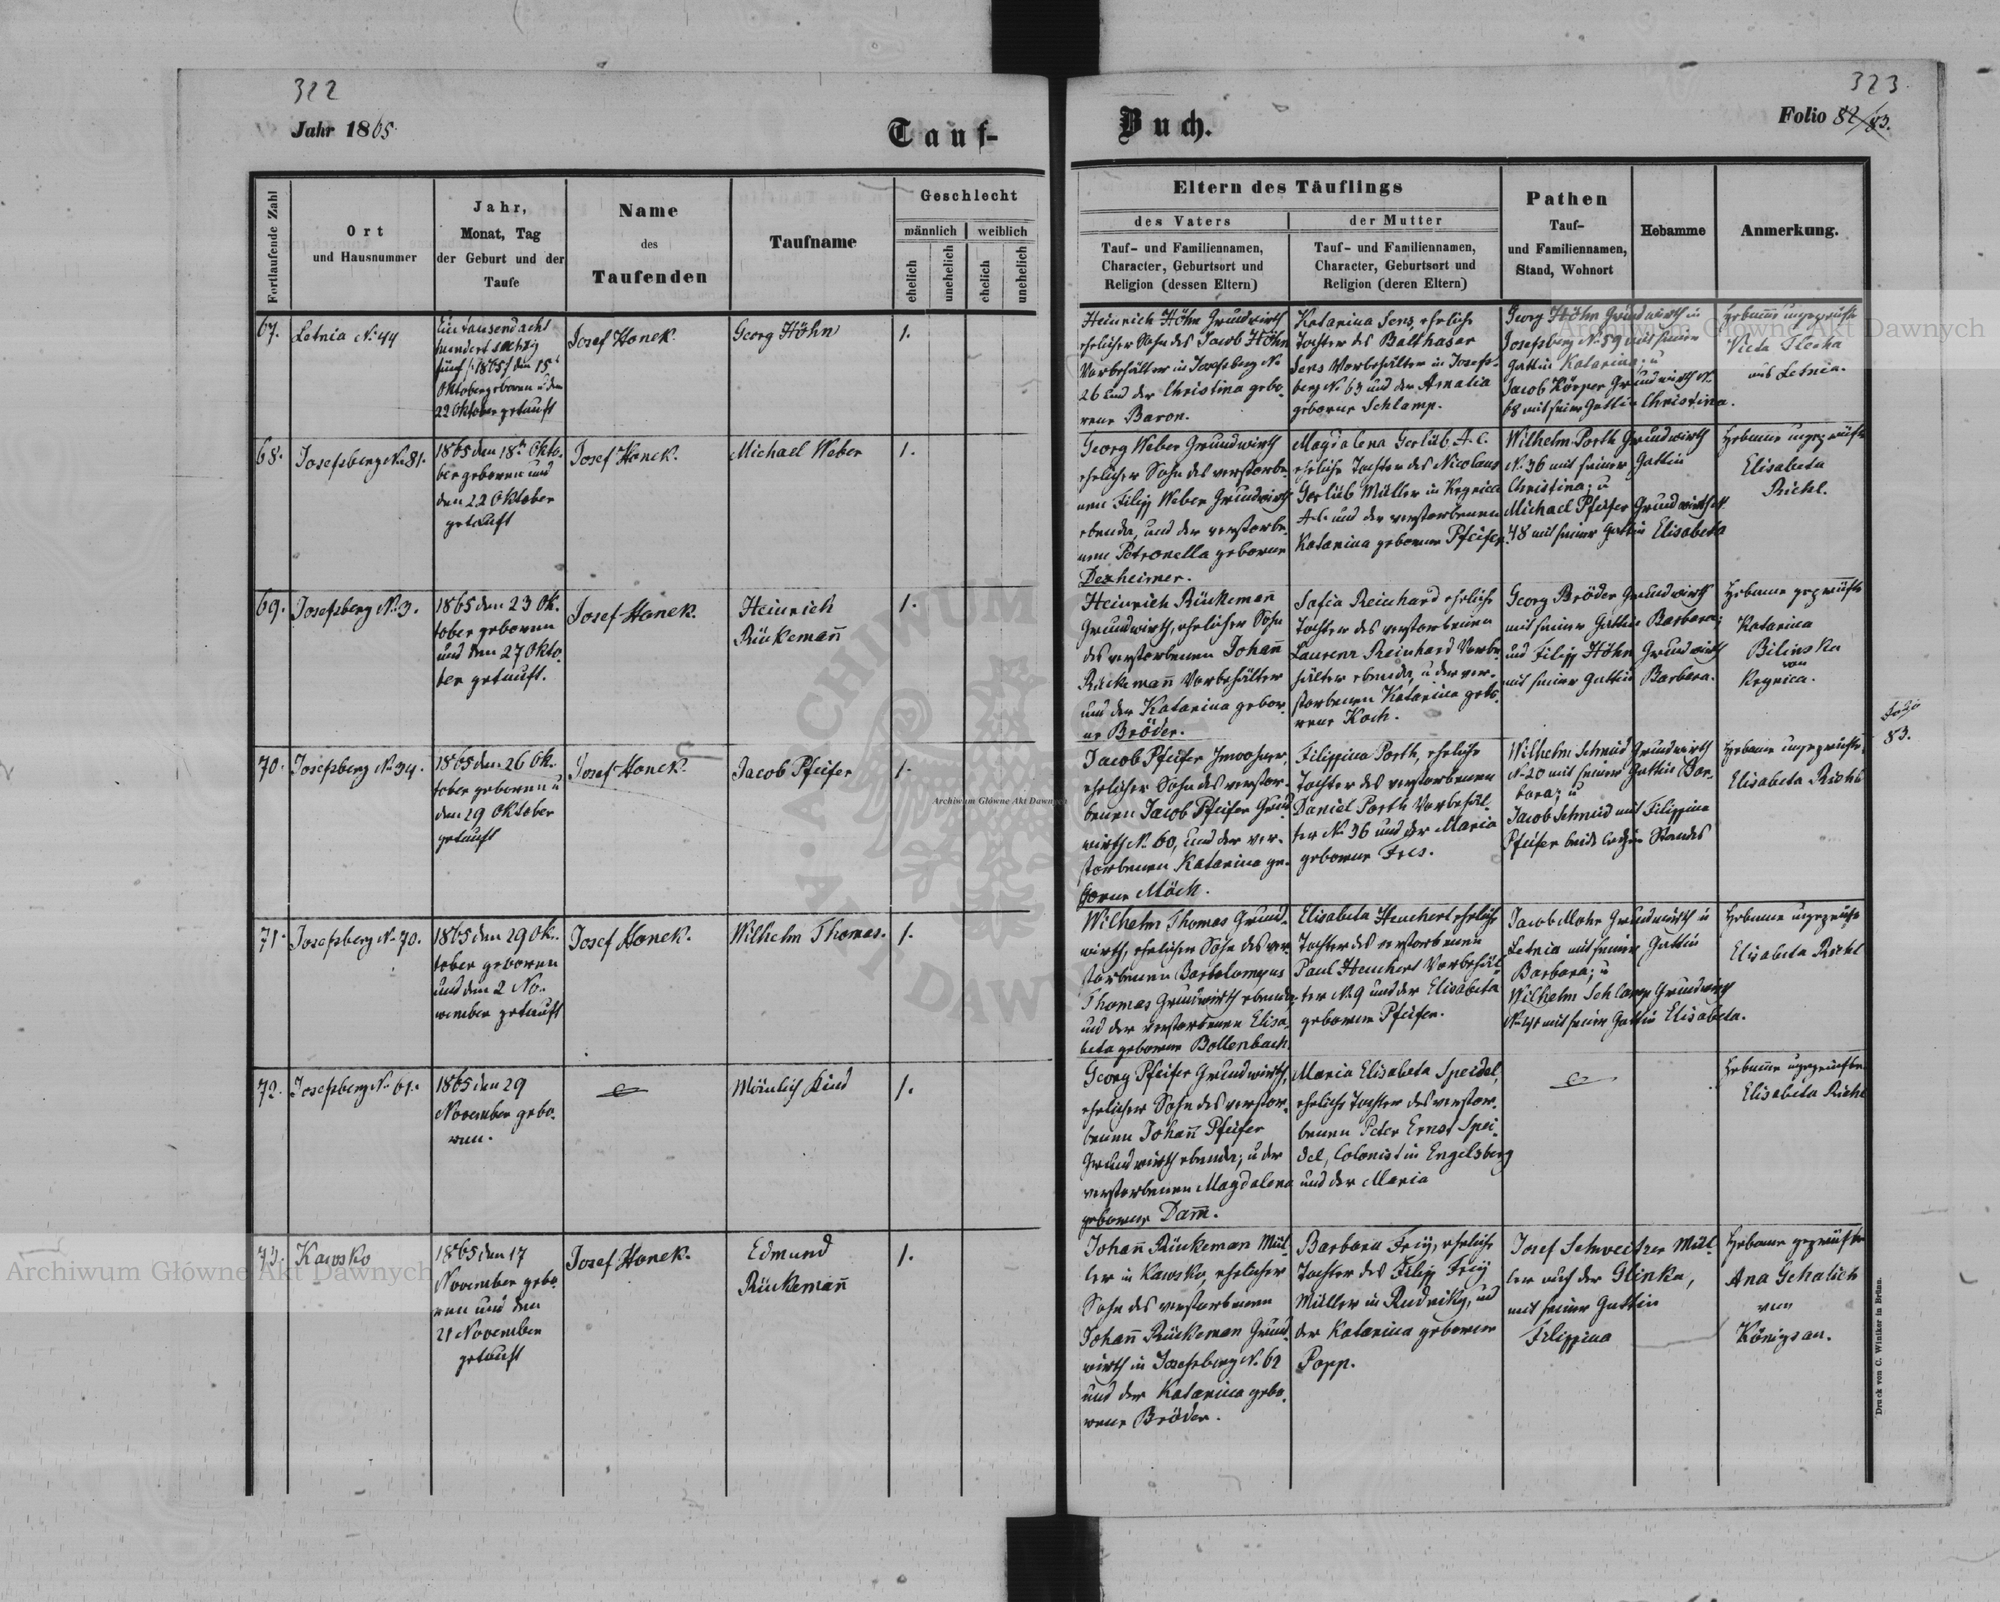 322
323
Jahr 1865.
Tauf-
Buch.
Folio 82/83.
Fortlaufende Zahl
Ort
und Hausnummer
Jahr,
Monat, Tag
der Geburt und der
Taufe
Name
des
Taufenden
Taufname
Geschlecht
männlich
weiblich
ehelich
unehelich
ehelich
unehelich
Eltern des Täuflings
des Vaters
der Mutter
Tauf- und Familiennamen,
Character, Geburtsort und
Religion (dessen Eltern)
Tauf- und Familiennamen,
Character, Geburtsort und
Religion (deren Eltern)
Pathen
Tauf-
und Familiennamen,
Stand, Wohnort
Hebamme
Anmerkung.
67.
Letnia No 44
Ein tausend acht
hundert sechzig
fünf /:1865:/ den 15t
Oktober geboren u den
22 Oktober getauft
Josef Honek.
Georg Höhn
1.
Heinrich Höhn Grundwirth
ehelicher Sohn des Jacob Höhn
Vorbehälter in Josefsberg No
26 und der Christina gebo-
rene Baron.
Katarina Sens, eheliche
Tochter des Balthasar
Sens Vorbehälter in Josefs-
berg No 63 und der Amalia
geborne Schlamp.
Georg Höhn Grundwirth in
Josefsberg No 59 mit seiner
Gattin Katarina; u
Jacob Körper Grundwirth No
68 mit seiner Gattin Christina.
Hebamme ungeprüfte
aus Letnia.
68.
Josefsberg No 81.
1865 den 18tn Okto-
ber geboren und
den 22 Oktober
getauft
Josef Honek.
Michael Weber
1.
Georg Weber Grundwirth
ehelicher Sohn des verstorbe-
nen Filipp Weber Grundwirth
ebenda, und der verstorbe-
nen Petronella geborne
Dexheimer.
Magdalena Gorlüb A. C.
eheliche Tochter des Nicolaus
Gorlüb Müller in Kegnica
A. C. und der verstorbenen
Katarina geborne Pfeifer.
Wilhelm Porth Grundwirth
No 36 mit seiner Gattin
Christina; u
Michael Pfeifer Grundwirth No
48 mit seiner Gattin Elisabeta
Hebamme ungeprüfte
Elisabeta
Richl.
69.
Josefsberg No 3.
1865 den 23 Ok-
tober geboren
und den 27 Okto-
ber getauft.
Josef Honek.
Heinrich
Rückemañ
1.
Heinrich Rückemañ
Grundwirth, ehelicher Sohn
des verstorbenen Johañ
Rückemañ Vorbehälter
und der Katarina gebor-
ne Bröder.
Sofia Reinhard eheliche
Tochter des verstorbenen
Laurenz Reinhard Vorbe-
hälter ebenda, u der ver-
storbenen Katarina gebo-
rene Koch.
Georg Bröder Grundwirth
mit seiner Gattin Barbara;
und Filipp Höhn Grundwirth
mit seiner Gattin Barbara.
Hebamme geprüfte
Katarina
Bilinska
von
Kegnica.
Folio
83.
70.
Josefsberg No 34.
1865 den 26 Ok-
tober geboren u
den 29 Oktober
getauft
Josef Honek.
Jacob Pfeifer
1.
Jacob Pfeifer Inwohner,
ehelicher Sohn des verstor-
benen Jacob Pfeifer Grund-
wirth No 60, und der ver-
storbenen Katarina ge-
borne Möck.
Filippina Porth, eheliche
Tochter des verstorbenen
Daniel Porth Vorbehäl-
ter No 36 und der Maria
geborne Fres.
Wilhelm Schmid Grundwirth
No 20 mit seiner Gattin Bar-
bara; u
Jacob Schmid mit Filippina
Pfeifer beide ledigen Standes
Hebamme ungeprüfte
Elisabeta Richl
71.
Josefsberg No 70.
1865 den 29 Ok-
tober geboren
und den 2 No-
vember getauft
Josef Honek.
Wilhelm Thomas.
1.
Wilhelm Thomas Grund-
wirth, ehelicher Sohn des ver-
storbenen Bartolomeus
Thomas Grundwirth ebenda,
und der verstorbenen Elisa-
beta geborne Bollenbach.
Elisabeta Heuchert eheliche
Tochter des verstorbenen
Paul Heuchert Vorbehäl-
ter No 9 und der Elisabeta
geborne Pfeifer.
Jacob Mohr Grundwirth in
Letnia mit seiner Gattin
Barbara; u
Wilhelm Schlamp Grundwirth
mit seiner Gattin Elisabeta.
Hebamme ungeprüfte
Elisabeta Richl
72.
Josefsberg No 61.
1865 den 29
November gebo-
ren.
Mänlich Kind
1.
Georg Pfeifer Grundwirth,
ehelicher Sohn des verstor-
benen Johañ Pfeifer
Grundwirth ebenda; u der
verstorbenen Magdalena
geborne Dam̃.
Maria Elisabeta Speidel,
eheliche Tochter des verstor-
benen Peter Ernst Spei-
del, Colonist in Engelsberg
und der Maria
Hebamme ungeprüfte
Elisabeta Richl
73.
Kawsko
1865 den 17
November gebo-
ren und den
21 November
getauft
Josef Honek.
Edmund
Rückemañ
1.
Johañ Rückeman Mül-
ler in Kawsko, ehelicher
Sohn des verstorbenen
Johañ Rückeman Grund-
wirth in Josefsberg No 62
und der Katarina gebo-
rene Bröder.
Barbara Freÿ, eheliche
Tochter des Filip Freÿ
Müller in Rudniky, und
der Katarina geborene
Popp.
Josef Schweitzer Mül-
ler auf der Glinka,
mit seiner Gattin
Filippina
Hebamme geprüfte
Ana Schalich
von
Königsau.
Druck von C. Winiker in Brünn.
Archiwum Główne Akt Dawnych
Archiwum Główne Akt Dawnych
Archiwum Główne Akt Dawnych
ARCHIWUM
AKT DAW